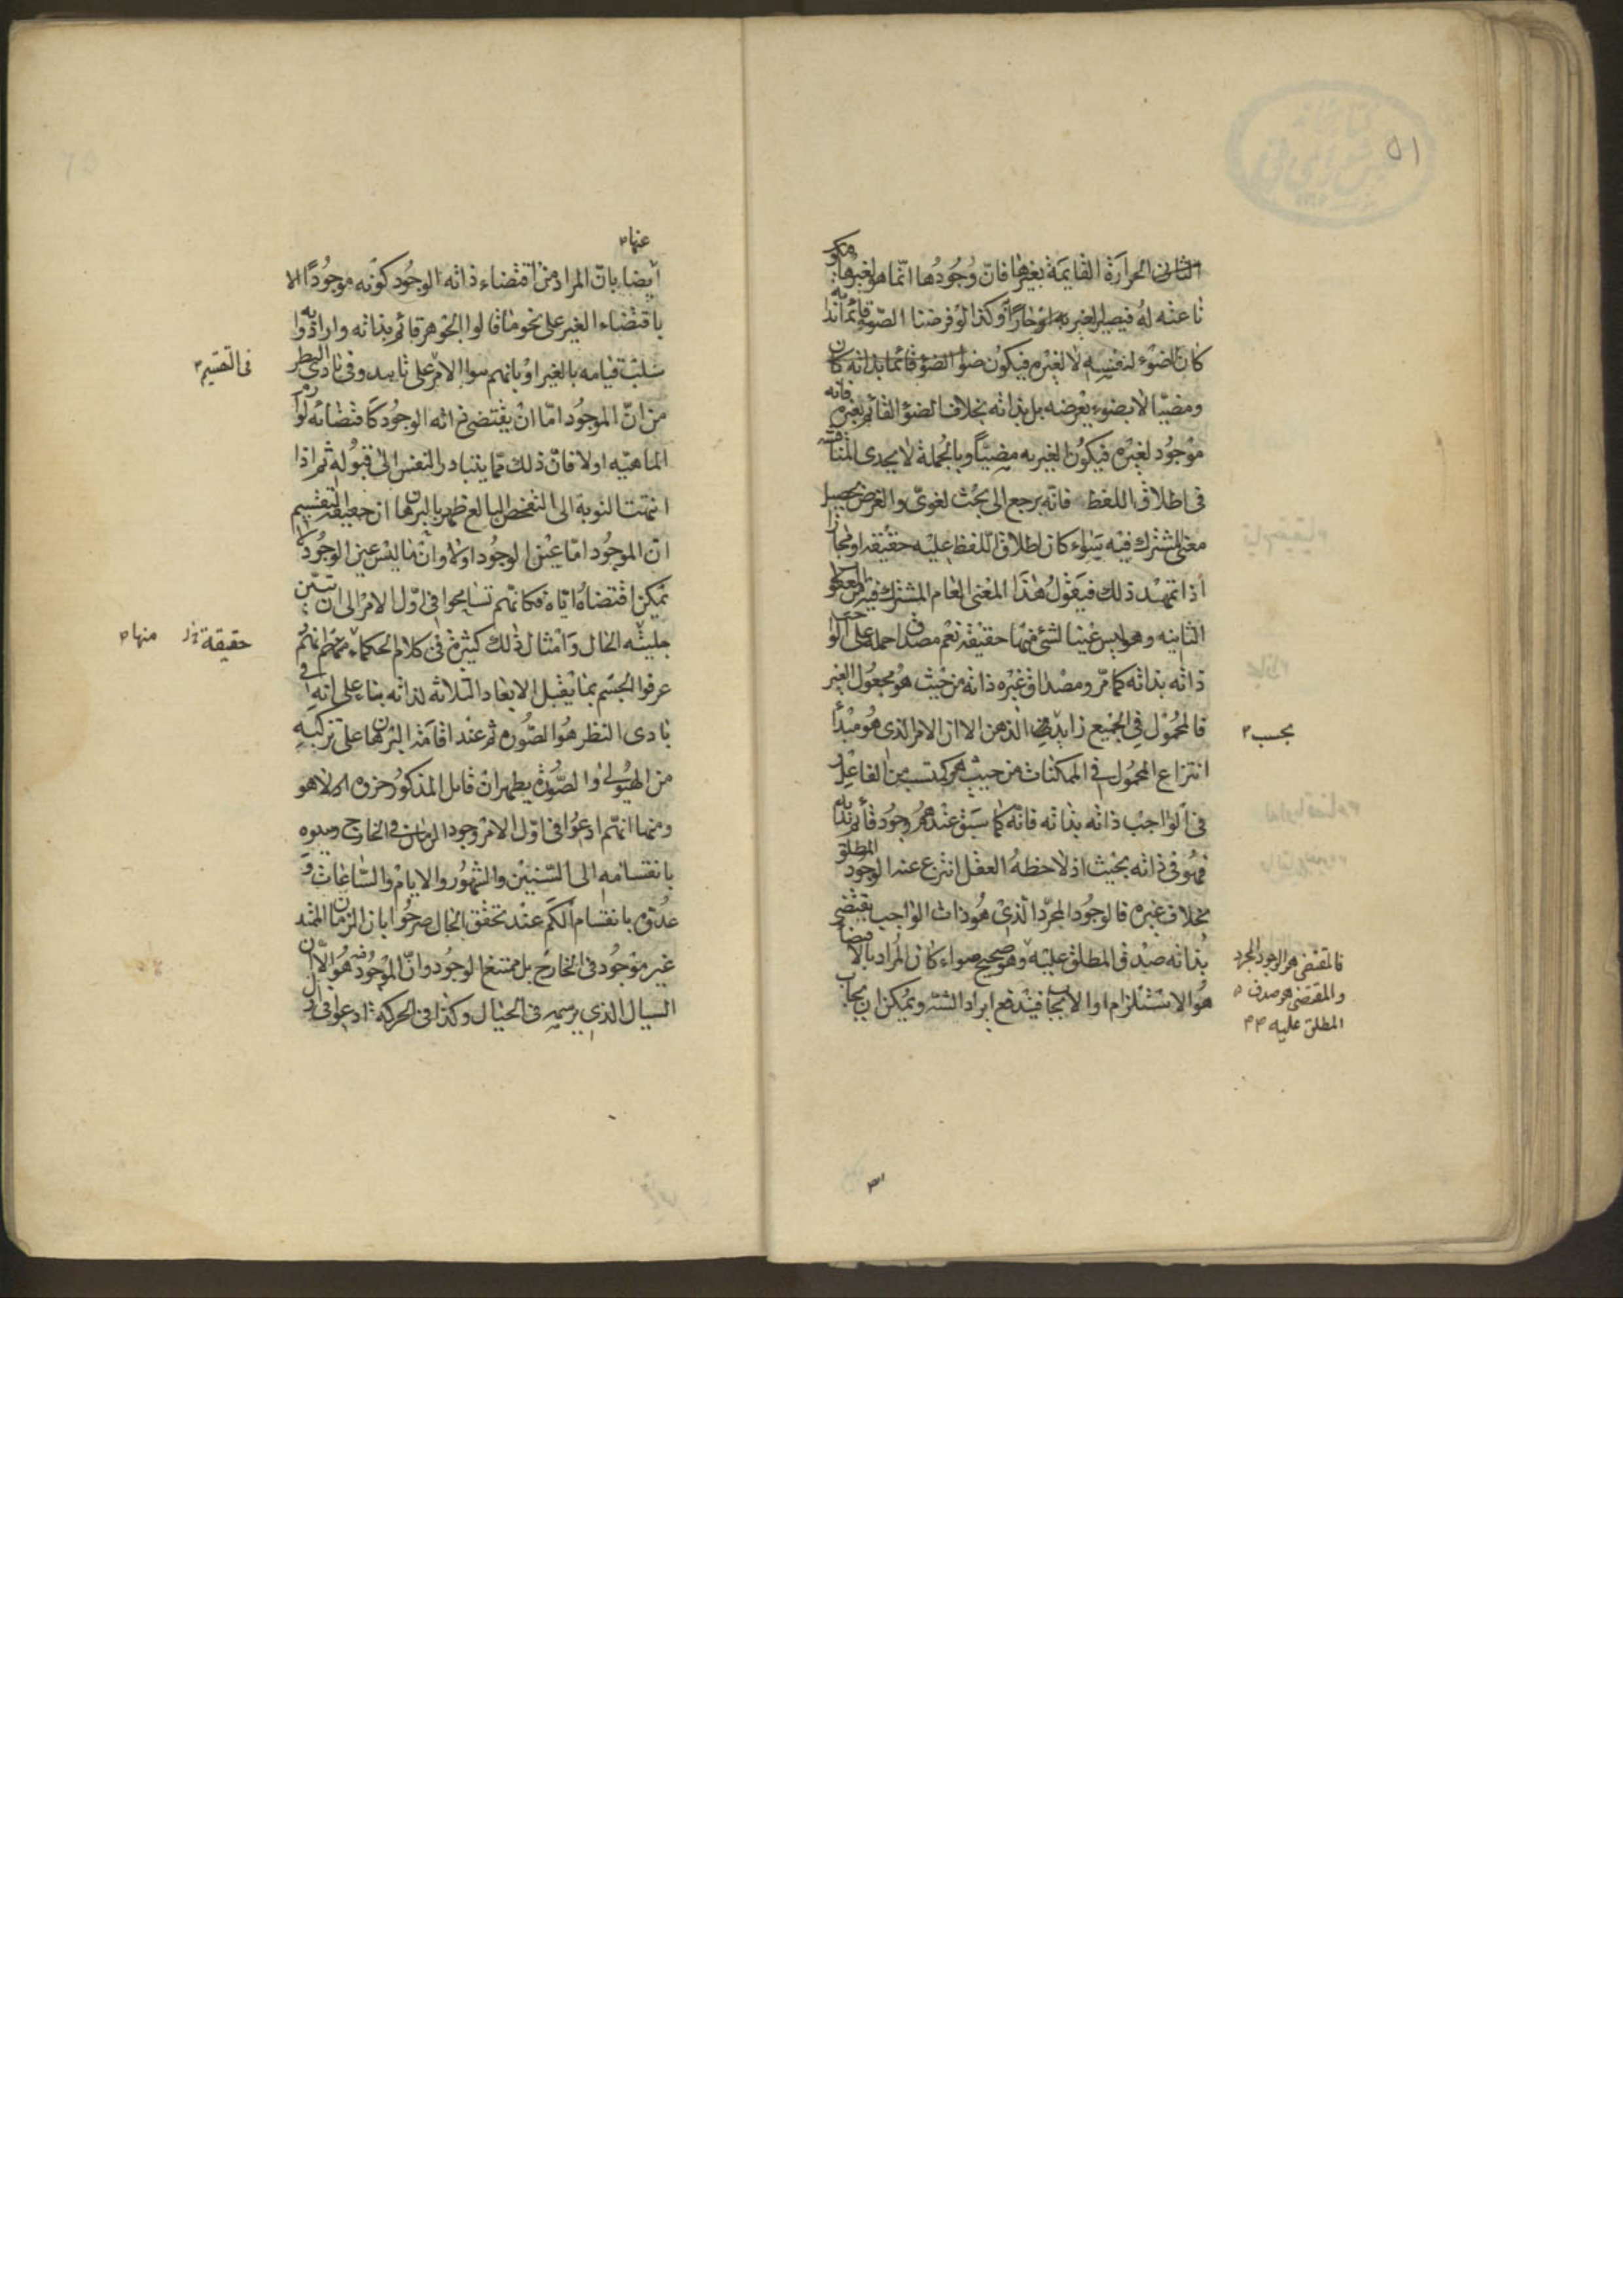 ٥١
الثانى الحرارة القايمة بغيرها فانّ وجودها انّما هو لغيرها فيكو
ناعته له فيصير الغير به حارّاً وكذا لو فرضنا الضوء قائما بذا
كان الضوء لنفسه لا لغيره فيكون ضوأ الضوء قائما بذاته كان
ومضيّا لا بضوء يعرضه بل بذاته بخلاف الضوء القائم بغيره فانه
موجود لغيره فيكون الغير به مضيّاً وبالجملة لا يجدى المناقشة
فى اطلاق اللفظ فانّه يرجع الى بحث لغوىّ والغرض تحصيل
معنى المشترك فيه سواء كان اطلاق اللفظ عليه حقيقة او مجازا
اذا تمهد ذلك فيقول هذا المعنى العام المشترك فيه من المعقو
الثانيه وهو ليس عينا لشئ منها حقيقة نعم مصداق حمله على الوا
ذاته بذاته كما مرّ ومصداق غيره ذاته من حيث هو مجعول الغير
فالمحمول فى الجميع زايد الذهن الا ان الامر الذى هو مبدأ
بحسب
انتزاع المحمول فى الممكنات من حيث هو مكتسب من الفاعل و
فى الواجب ذاته بذاته فانّه كما سبق عندهم وجود قائم بذاته
فهو فى ذاته بحيث اذ لاحظه العقل انتزع عنه الوجود المطلق
بخلاف غيره فالوجود المجرّد الذى هو ذات الواجب يقتضى
بذاته صدق المطلق عليه وهو صحيح سواء كان المراد بالاقتضاء
هو الاستلزام او الايجاب فيندفع ايراد الشبه ويمكن ان يجاب
فالمقتضى هو الوجود المجرد
والمقتضى هو صدق
المطلق عليه
عنها
أيضا بانّ المراد من اقتضاء ذاته الوجود كونه موجودًا لا
باقتضاء الغير على نحو ما قالوا الجوهر قائم بذاته وارادوا به
سلب قيامه بالغير او بانهم بنوا الامر على وفى بادى النظر
فى التقسيم
من انّ الموجود امّا ان يقتضى ذاته الوجود كاقتضائه لوازم
الماهيّه اولا فانّ ذلك ممّا يتبادر النفس الى قبوله ثم اذا
انتهت النوبة الى التفحص البالغ ظهر بالبرهان ان حقيقة التقسيم
انّ الموجود امّا عين الوجود اولا وانّ ما ليس عين الوجود لا
يمكن اقتضاؤه ايّاه فكانّهم تسامحوا فى اوّل الامر الى ان تبيّن
جليّة الحال وامثال ذلك كثيرة فى كلام الحكماء انهم
حقيقة منها
عرفوا الجسم بما يقبل الابعاد الثلاثه لذاته بناء على انه فى
بادى النظر هو الصّوره ثم عند اقامة البرهان على تركبه
من الهيولى والصّورة يظهر ان قابل المذكور جزؤه لا هو
ومنها انّهم ادعوا فى اوّل الامر وجود الزمان فى الخارج
بانقسامه الى السّنين والشهور والايام والسّاعات و
عدّوه بانقسام الكم عند تحقق الحال صرّحوا بان الزمان الممتد
غير موجود فى الخارج بل ممتنع الوجود وانّ الموجود منه هو الآن
السيال الذى يرسمه فى الخيال وكذا فى الحركة ادعوا فى اول